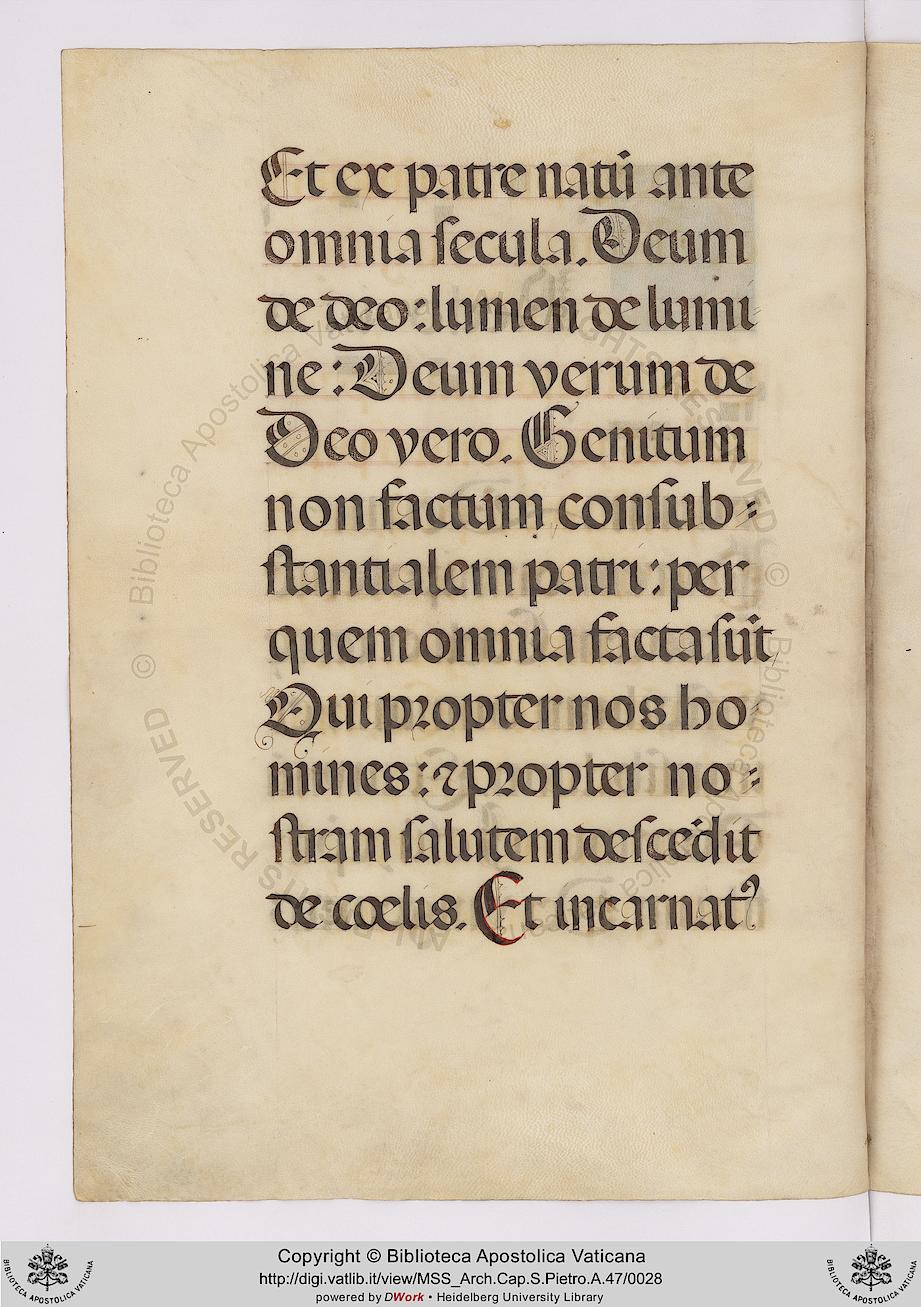 Et ex patre natū ante
omnia ſecula. Deum
de deo: lumen de lumi
ne: Deum verum de
Deo vero. Genitum
non factum conſub⸗
ſtantialem patri: per
quem omnia facta ſūt,
Qui propter nos ho
mines: ⁊ propter no⸗
ſtram ſalutem deſcēdit
de cœlis. Et incarnatꝰ
© Biblioteca Apostolica Vaticana
Copyright © Biblioteca Apostolica Vaticana
http://digi.vatlib.it/view/MSS_Arch.Cap.S.Pietro.A.47/0028
powered by DWork • Heidelberg University Library
BIBLIOTECA APOSTOLICA VATICANA
BIBLIOTECA APOSTOLICA VATICANA